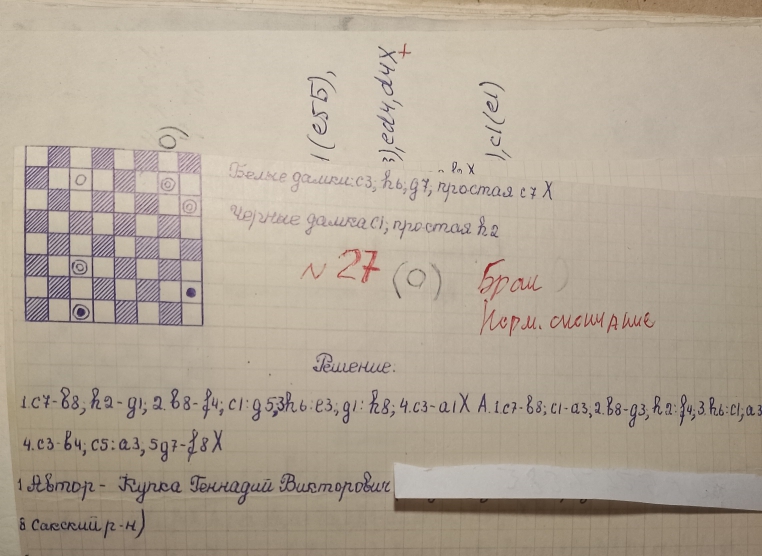 1(e5b),
3),ed4,d4X+
),c1(e1)
0)
Белые дамки: c3; h6; g7; простая c7 X
Черные дамка c1; простая h2
N 27 (0)
Брак
Решение:
1.c7-b8, h2-g1; 2.b8-f4; c1:g5; 3h6:e3; g1:h8; 4.c3-a1X А.1.c7-b8; c1-a3, 2.b8-g3, h2:f4; 3.h6:c1, a3
4.c3-b4; c5:a3, 5g7-f8X
1 Автор - Купка Геннадий Викторович
8 Сакский р-н)